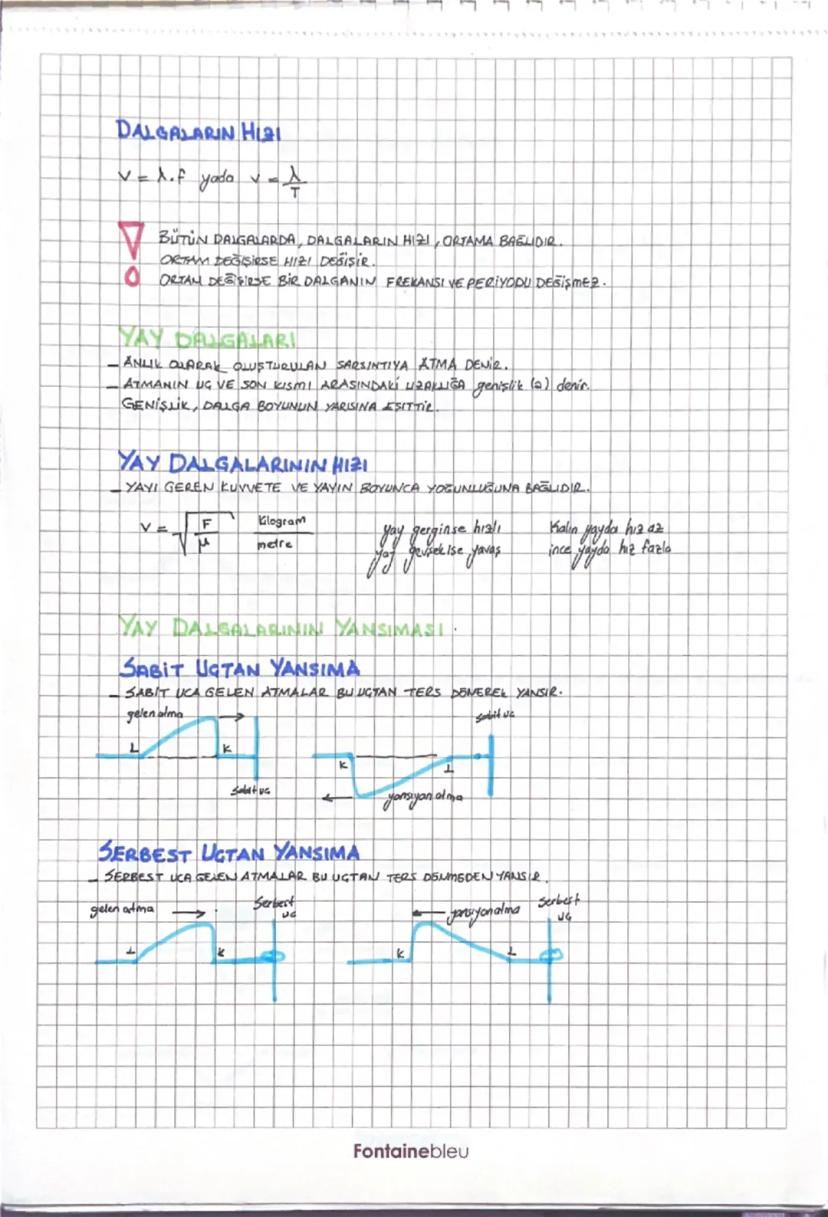 DALGALARIN HIZI
V = λ.f yada v = λ/T
BÜTÜN DALGALARDA, DALGALARIN HIZI, ORTAMA BAĞLIDIR.
ORTAM DEĞİŞİRSE HIZI DEĞİŞİR.
ORTAM DEĞİŞİRSE BİR DALGANIN FREKANSI VE PERİYODU DEĞİŞMEZ.
YAY DALGALARI
- ANLIK OLARAK OLUŞTURULAN SARSINTIYA ATMA DENİR.
- ATMANIN UÇ VE SON KISMI ARASINDAKİ UZAKLIĞA genişlik (a) denir.
GENİŞLİK, DALGA BOYUNUN YARISINA EŞİTTİR.
YAY DALGALARININ HIZI
- YAYI GEREN KUVVETE VE YAYIN BOYUNCA YOĞUNLUĞUNA BAĞLIDIR.
V = √F/μ Kilogram/metre
yay gerginse hızlı Kalın yayda hız az
yay gevşekse yavaş ince yayda hız fazla
YAY DALGALARININ YANSIMASI
SABİT UÇTAN YANSIMA
- SABİT UCA GELEN ATMALAR BU UÇTAN TERS DÖNEREK YANSIR.
gelen atma sabit uç
L K K L
sabit uç yansıyan atma
SERBEST UÇTAN YANSIMA
- SERBEST UCA GELEN ATMALAR BU UÇTAN TERS DÖNMEDEN YANSIR.
gelen atma Serbest uç yansıyan atma Serbest uç
L K K L
Fontainebleu